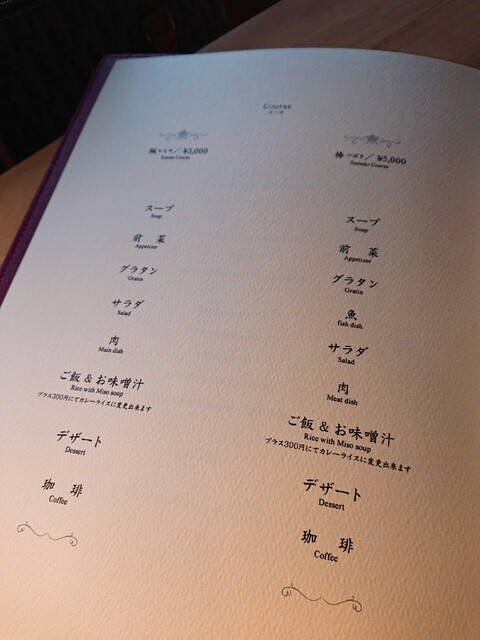 Course
コース
楓 かえで／ ¥3,000
Kaede Course
スープ
Soup
前 菜
Appetizer
グラタン
Gratin
サラダ
Salad
肉
Main dish
ご飯 & お味噌汁
Rice with Miso soup
プラス300円にてカレーライスに変更出来ます
デザート
Dessert
珈 琲
Coffee
椿 つばき／ ¥5,000
Tsubaki Course
スープ
Soup
前 菜
Appetizer
グラタン
Gratin
魚
fish dish
サラダ
Salad
肉
Meat dish
ご飯 & お味噌汁
Rice with Miso soup
プラス300円にてカレーライスに変更出来ます
デザート
Dessert
珈 琲
Coffee